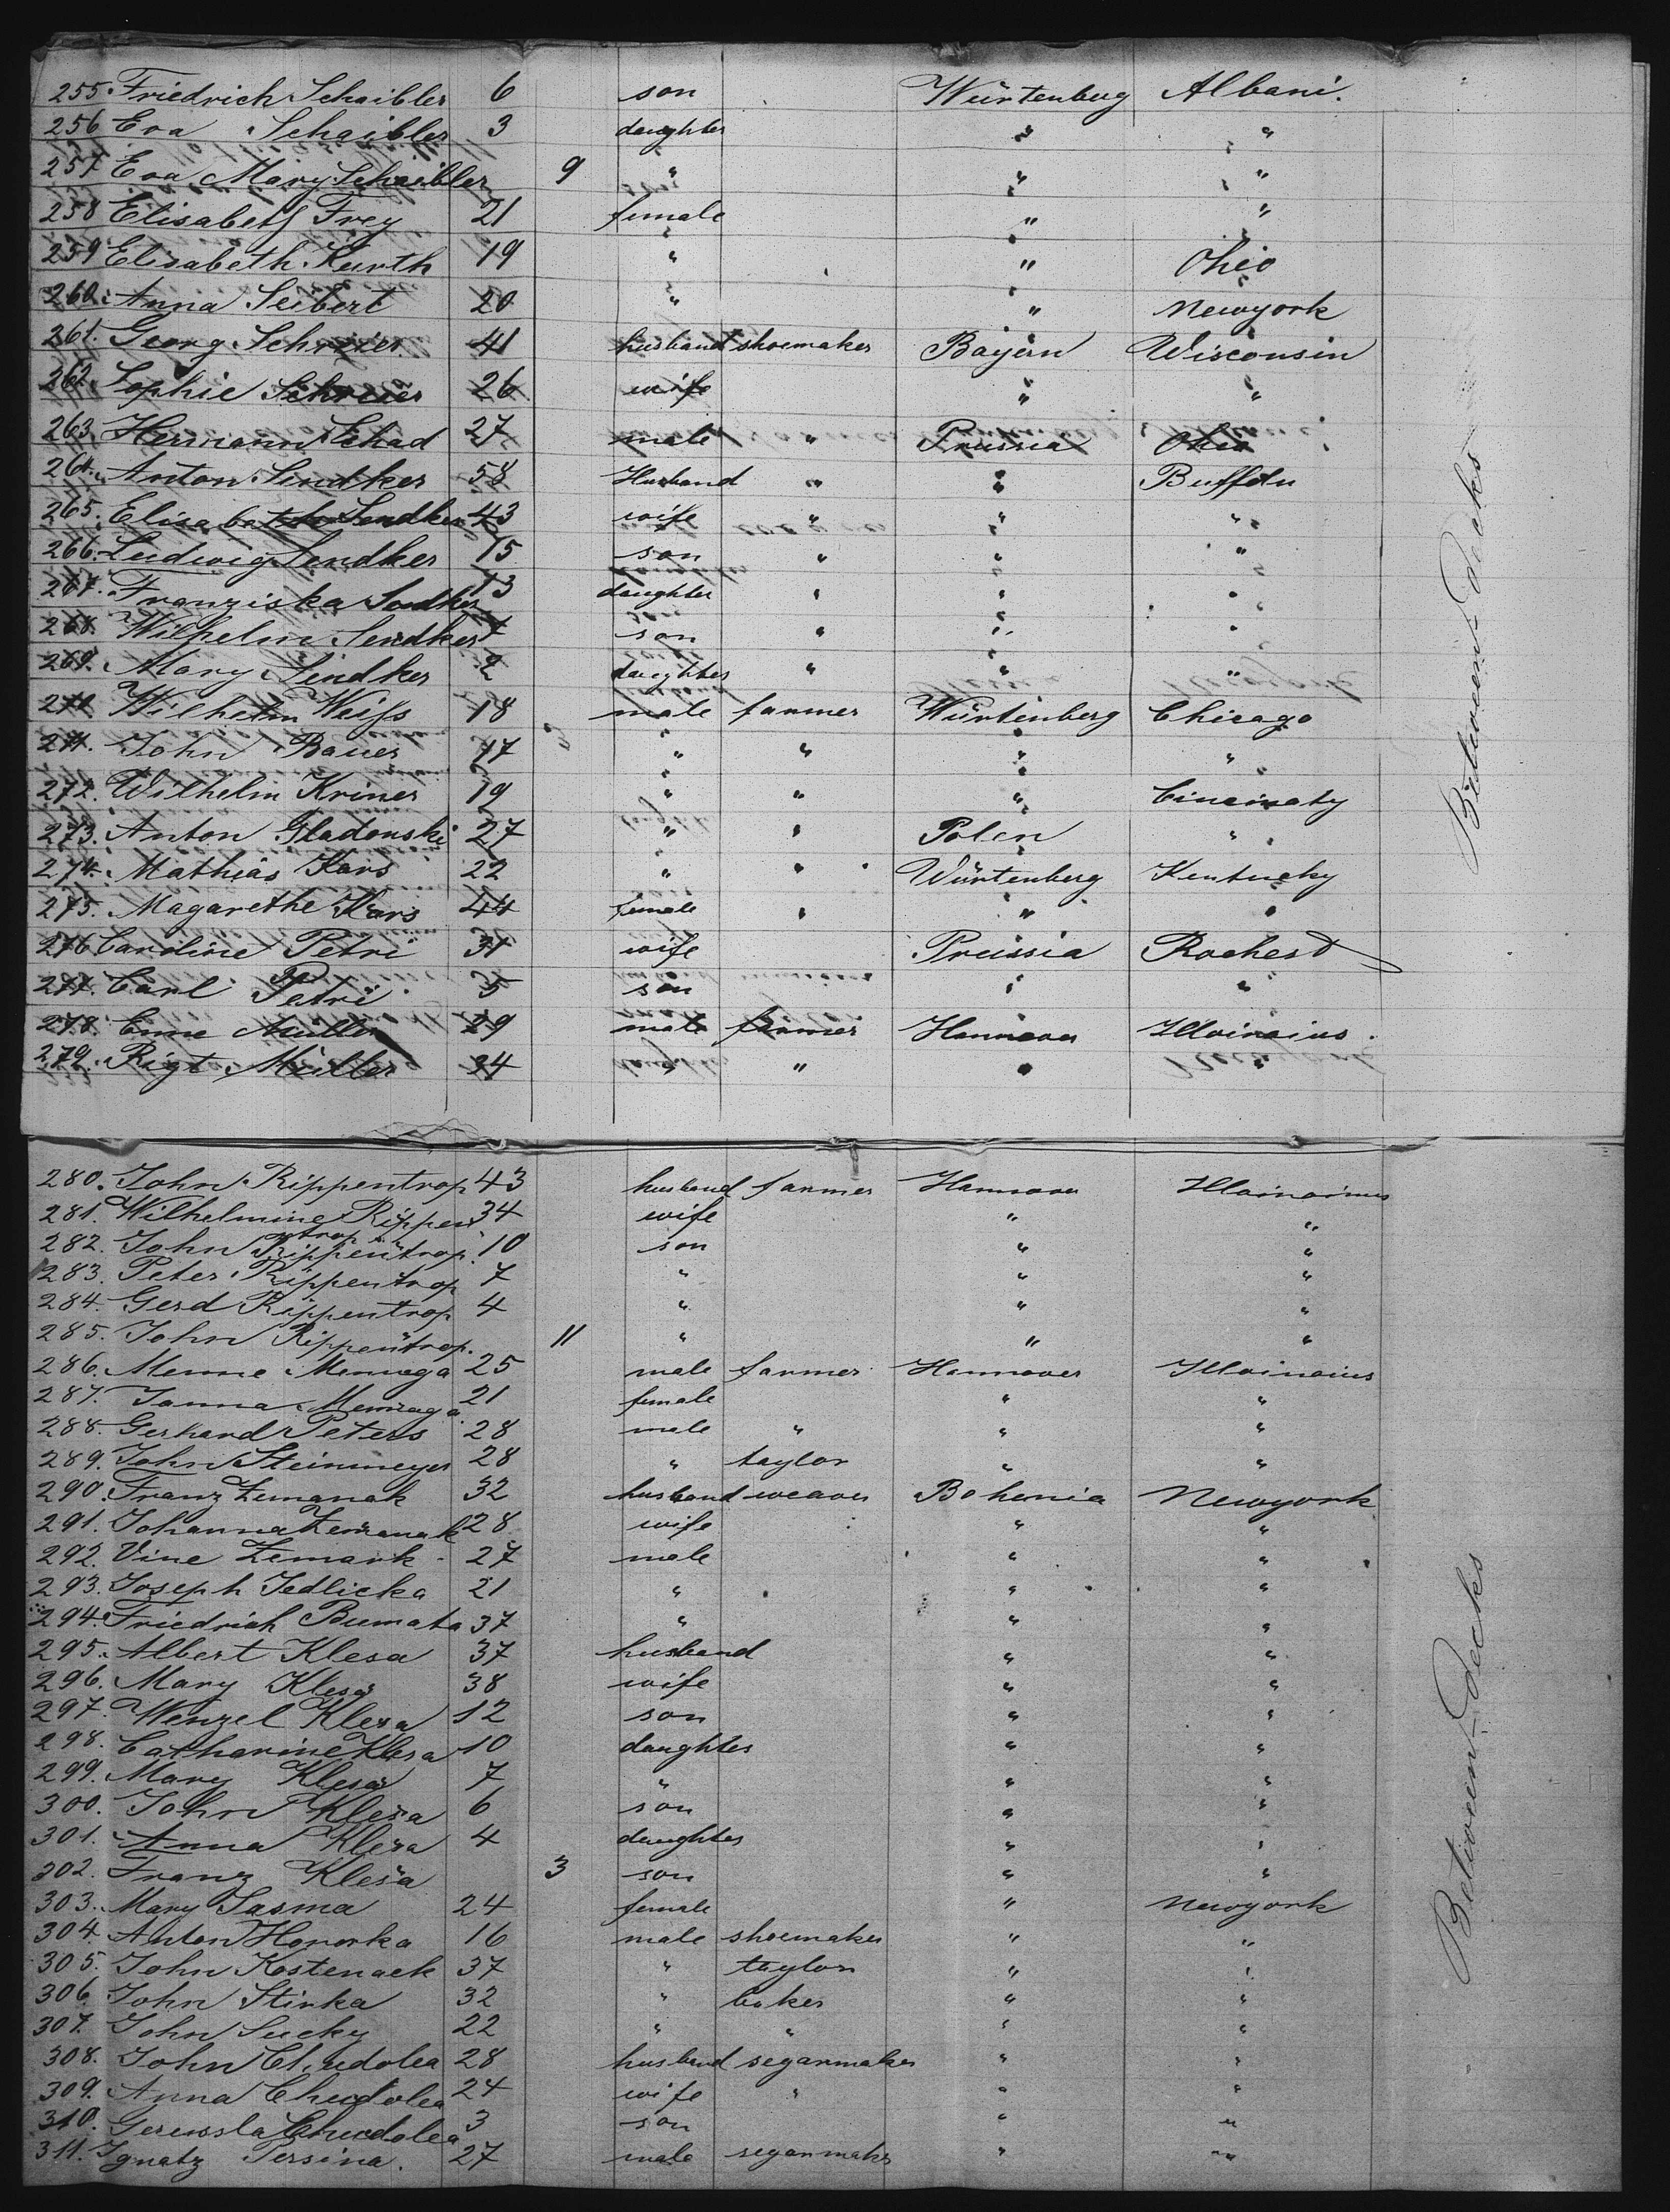 255. Friedrich Schaibler 6 son Würtenbug Albani.
256 Eva Schaibler 3 daughter " "
257 Eva Mary Schaibler 9 " " "
258 Elisabeth Frey 21 female " "
259 Elisabeth Kurth 19 " " Ohio
260. Anna Seibert 20 " " Newyork
261. Georg Schreier 41 husband shoemaker Bayern Wisconsin
262. Sophie Schreier 26 wife " "
263. Hermann Schad 27 male " Prussia Ohio
264. Anton Sendker 58 Husband " " Buffolu
265. Elisabeth Sendker 43 wife " " "
266. Ludwig Sendker 15 son " " "
267. Franziska Sendker 13 daughter " " "
268. Wilhelm Sendker 7 son " " "
269. Mary Sendker 2 daughter " " "
270 Wilhelm Weifs 18 male farmer Würtenberg Chicago
271. John Bauer 17 " " " "
272. Wilhelm Kriner 19 " " " Cincinaty
273. Anton Gladonski 27 " " Polen "
274. Mathias Kars 22 " " Würtenberg Kentucky
275. Magarethe Kars 44 female " " "
276 Caroline Petri 31 wife Preussia Rochest
277. Carl Petri 5 son " "
278. Enne Müller 29 male farmer Hannover Illoinoius
279. Rigt Müller 34 " " " "
280. John Rippentrop 43 husband farmer Hannover Illoinoinus
281. Wilhelmine Rippen 34 wife " "
trop
282. John Rippentrop. 10 son " "
283. Peter Rippentrop 7 " " "
284. Gerd Rippentrop 4 " " "
285. John Rippentrop. 11 " " "
286. Menne Mennega 25 male farmer Hannover Illoinoius
287. Janna Mennaga 21 female " "
288. Gerhard Peters 28 male " " "
289. John Steinmeyer 28 " taylor " "
290. Franz Zemanak 32 husband weaver Bohemia Newyork
291. Johanna Zemanak 28 wife " "
292. Vine Zemark 27 male " "
293. Joseph Jedlicka 21 " " "
294. Friedrich Bumata 37 " " "
295. Albert Klesa 37 husband " "
296. Mary Klesa 38 wife " "
297. Wenzel Klesa 12 son " "
298. Catharine Klesa 10 daughter " "
299. Mary Klesa 7 " " "
300. John Klesa 6 son " "
301. Anna Klesa 4 daughter " "
302. Franz Klesa 3 son " "
303. Mary Sasma 24 female " Newyork
304. Anton Honorka 16 male shoemaker " "
305. John Kostenaek 37 " taylor " "
306 John Stirka 32 " baker " "
307. John Sucky 22 " " " "
308. John Chudolea 28 husband seganmaker " "
309. Anna Chudolea 24 wife " " "
310. Gerussla Chudolea 3 son " "
311. Ignatz Persina. 27 male seganmaker " "
Betiween-decks
Betiween-decks